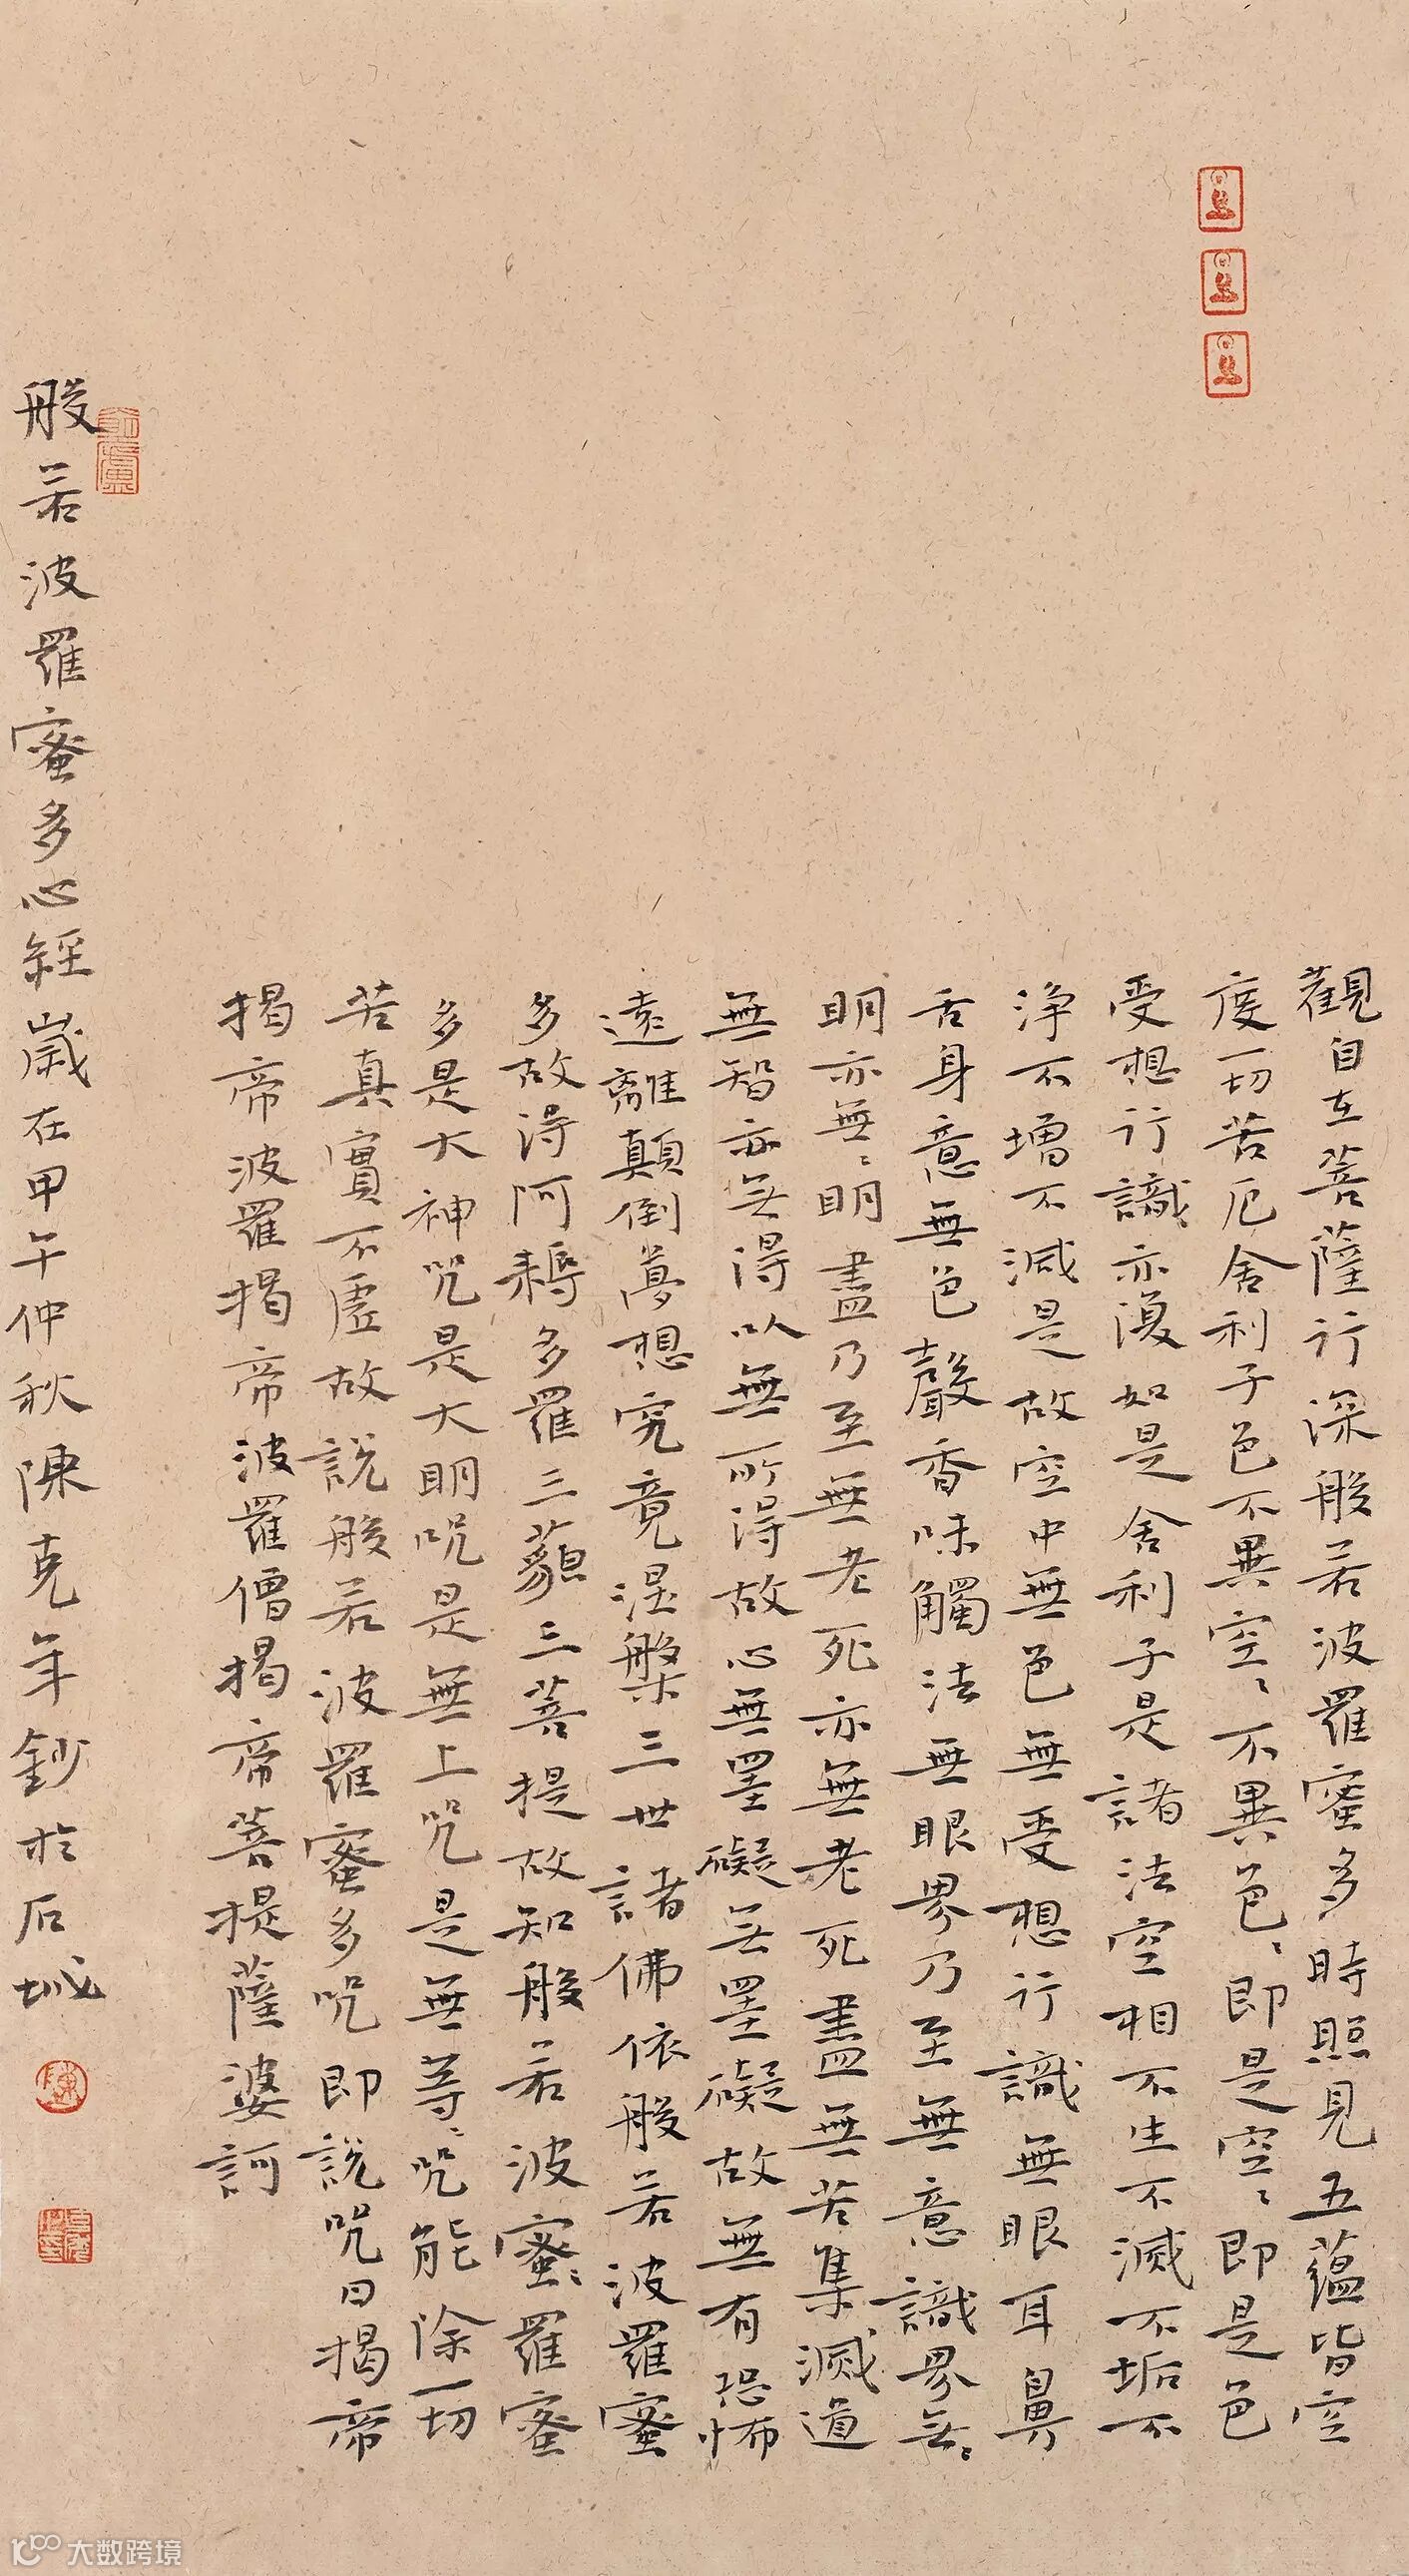 觀自在菩薩行深般若波羅蜜多時照見五蘊皆空
度一切苦厄舍利子色不異空、不異色、即是空、即是色
受想行識亦復如是舍利子是諸法空相不生不滅不垢不
淨不增不減是故空中無色無受想行識無眼耳鼻
舌身意無色聲香味觸法無眼界乃至無意識界无、
明亦無、明盡乃至無老死亦無老死盡無苦集滅道
無智亦无得以無所得故心無罣礙无罣礙故無有恐怖
遠離顛倒夢想究竟涅槃三世諸佛依般若波羅蜜
多故得阿耨多羅三藐三菩提故知般若波蜜、羅蜜
多是大神咒是大明咒是無上咒是無等、咒能除一切
苦真實不虛故說般若波羅蜜多咒即說咒曰揭帝
揭帝波羅揭帝波羅僧揭帝菩提薩婆訶
般若波羅蜜多心經歲在甲午仲秋陳克年鈔於石城
陳
大数跨境